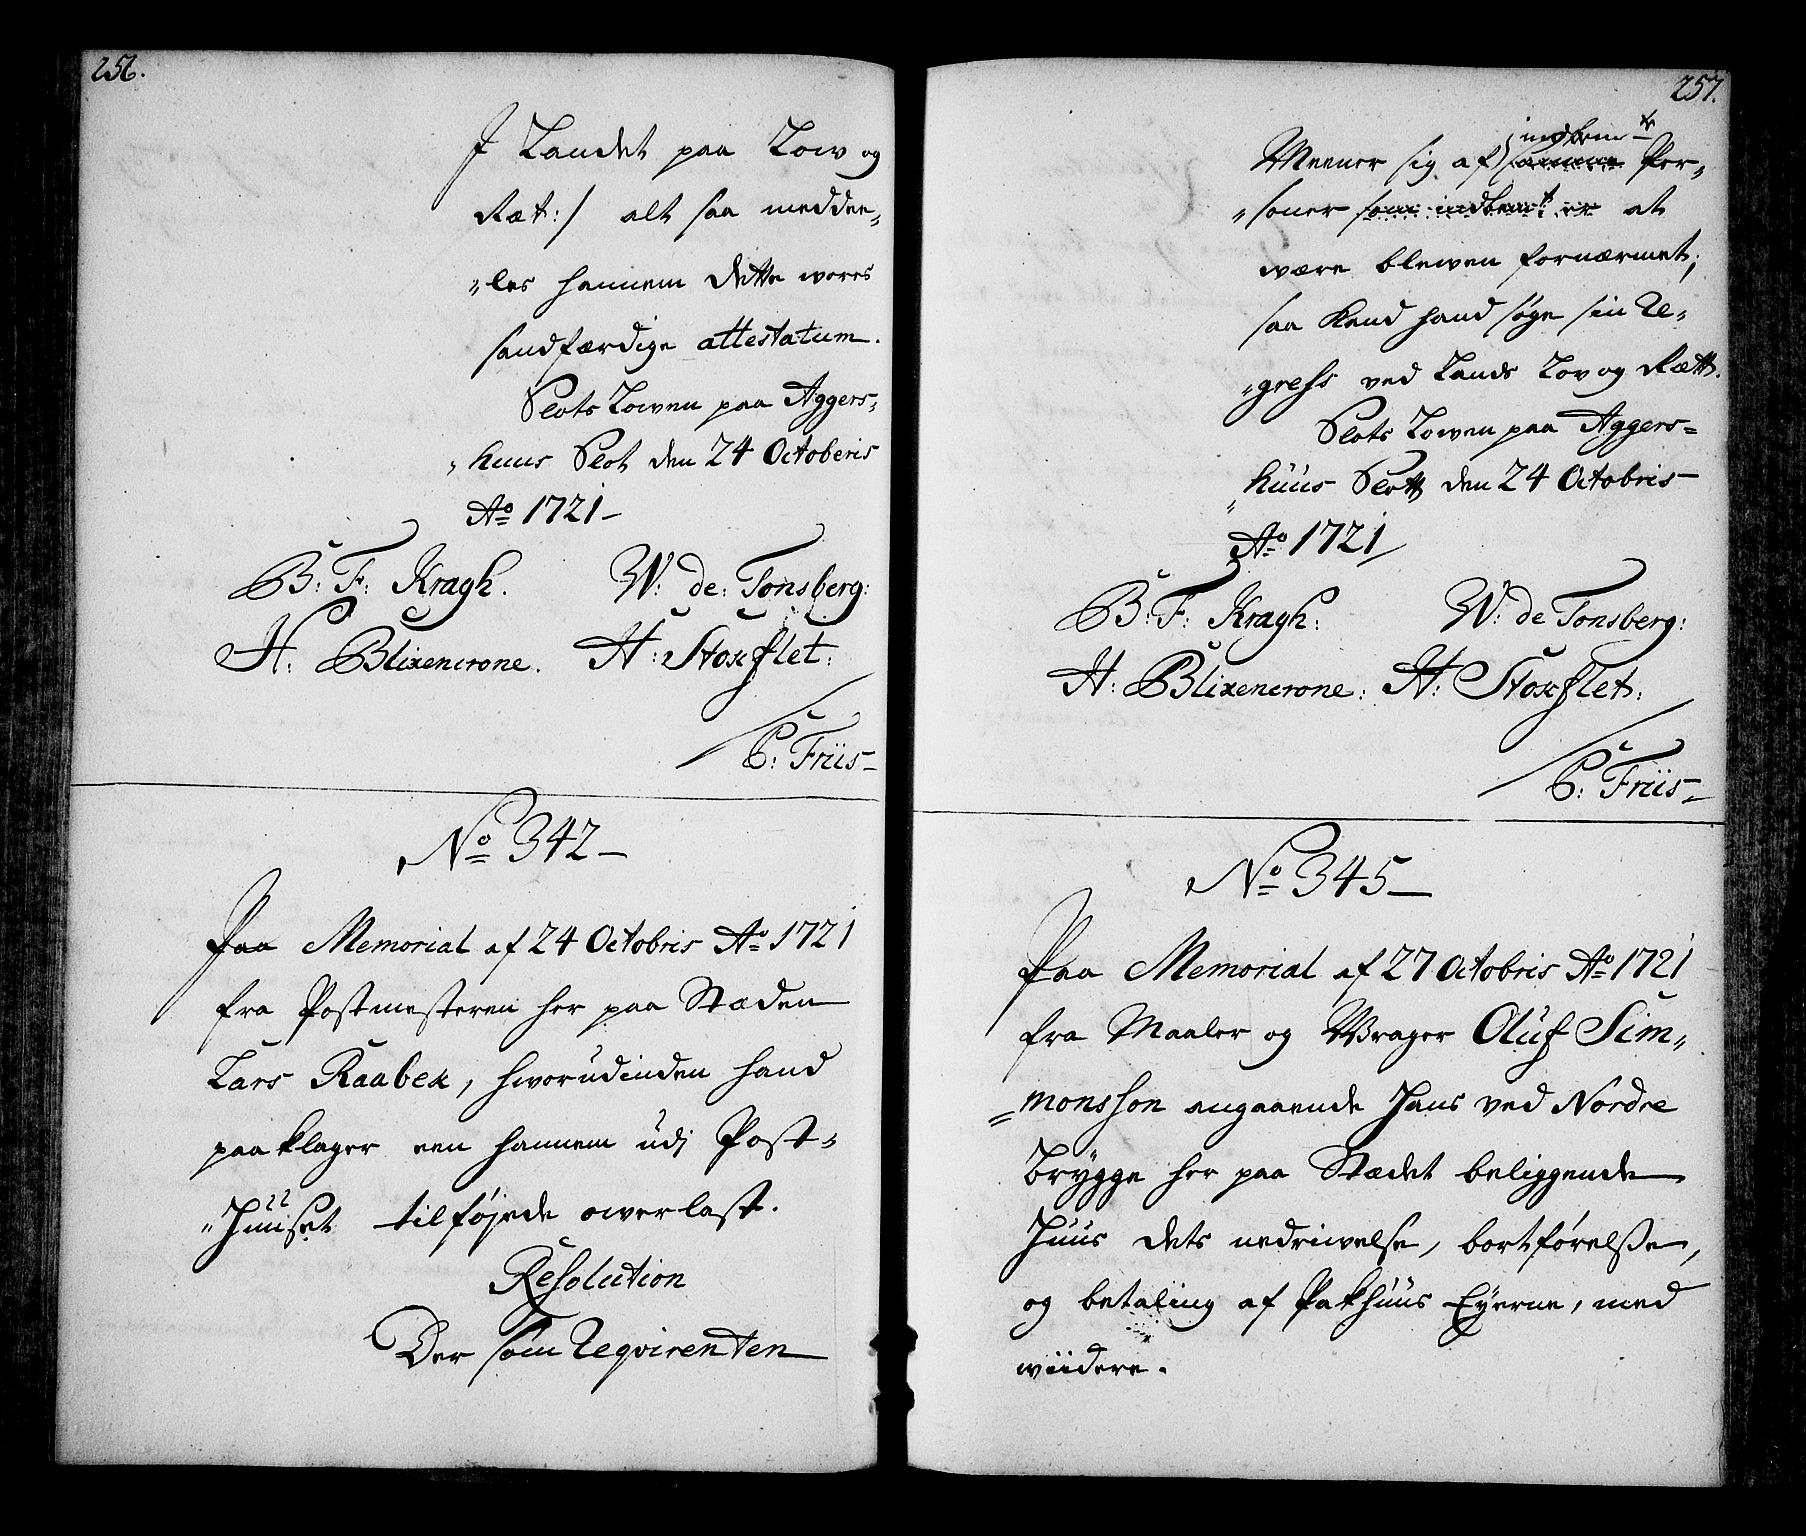 256.
I Landet paa Low og
Ræt:/ alt saa meddee-
"les hannem dette wores
sandfærdige attestatum.
Slots Lowen paa Aggers-
"huus Slot den 24 Octoberis
Ao 1721
B: F: Kragh. W: de: Tonsberg:
H: Blixencrone. H: Stoxflet:
C: Friis
No 342
Paa Memorial af 24 Octobris Ao 1721
fra Postmesteren her paa Stæden
Lars Raabek, hworudinden hand
paaklager een hannem udi Post-
"Huuset tilføjede owerlast.
Resolution
Der som Reqvirenten
257.
indbemte
Meener sig af samme Per-
"soner som indbemt er at
være blewen fornærmet,
saa kand hand søge sin Re-
"gress ved Lands Lov og Rætt.
Slots Lowen paa Aggers-
"huus Slott den 24 Octobris
Ao 1721
B: F: Kragh: W: de Tonsberg:
H: Blixencrone: H: Stoxflet:
C: Friis
No 345
Paa Memorial af 27 Octobris Ao 1721
fra Maaler og Wrager Oluf Sim-
"monsson angaaende Hans ved Nordre
Brygge her paa Stædet beliggende
Huus dets nedriwelse, bortførelsse,
og betaling af Pakhuus Eyerne, med
wiidere.